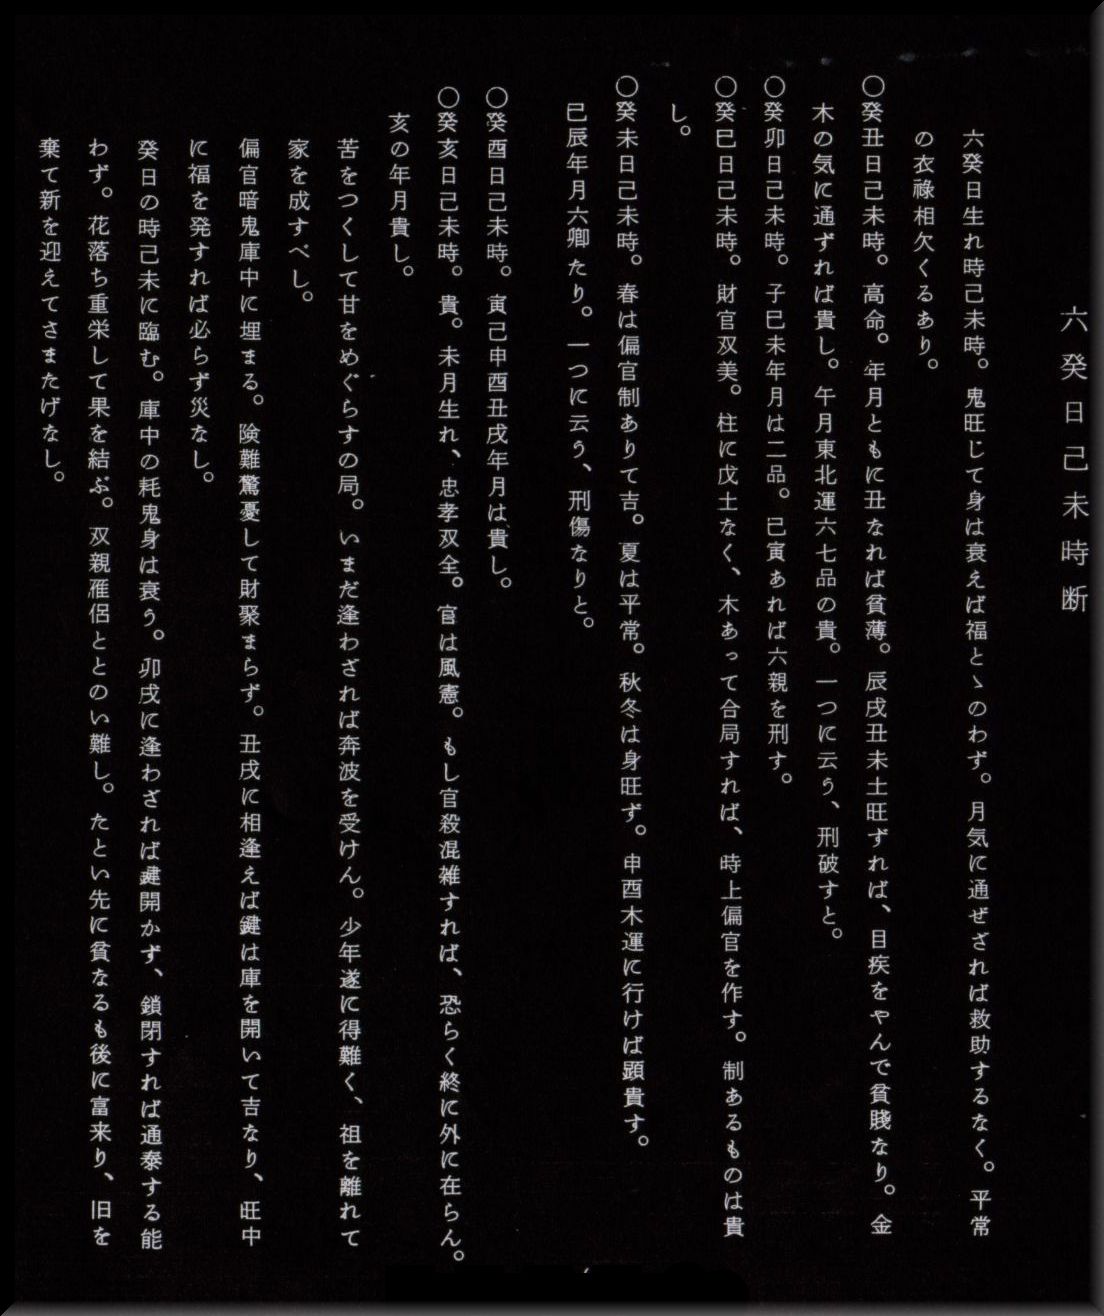 六癸日己未時断
六癸日生れ時己未時。鬼旺じて身は衰えば福とゝのわず。月気に通ぜざれば救助するなく。平常
の衣祿相欠くるあり。
〇癸丑日己未時。高命。年月ともに丑なれば貧薄。辰戌丑未土旺ずれば、目疾をやんで貧賤なり。金
木の気に通ずれば貴し。午月東北運六七品の貴。一つに云う、刑破すと。
〇癸卯日己未時。子巳未年月は二品。巳寅あれば六親を刑す。
〇癸巳日己未時。財官双美。柱に戊土なく、木あって合局すれば、時上偏官を作す。制あるものは貴
し。
〇癸未日己未時。春は偏官制ありて吉。夏は平常。秋冬は身旺ず。申酉木運に行けば顕貴す。
巳辰年月六卿たり。一つに云う、刑傷なりと。
〇癸酉日己未時。寅己申酉丑戌年月は貴し。
〇癸亥日己未時。貴。未月生れ、忠孝双全。官は風憲。もし官殺混雑すれば、恐らく終に外に在らん。
亥の年月貴し。
苦をつくして甘をめぐらすの局。いまだ逢わざれば奔波を受けん。少年遂に得難く、祖を離れて
家を成すべし。
偏官暗鬼庫中に埋まる。険難驚憂して財聚まらず。丑戌に相逢えば鍵は庫を開いて吉なり、旺中
に福を発すれば必らず災なし。
癸日の時己未に臨む。庫中の耗鬼身は衰う。卯戌に逢わざれば鍵開かず、鎖閉すれば通泰する能
わず。花落ち重栄して果を結ぶ。双親雁侶ととのい難し。たとい先に貧なるも後に富来り、旧を
棄て新を迎えてさまたげなし。